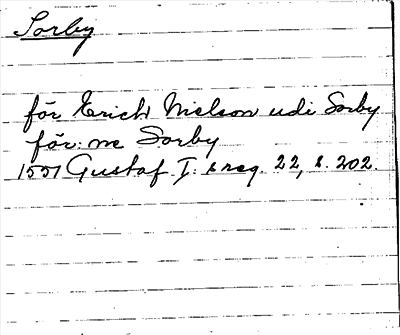 Sorby
för Erich Nielson udi Sorby
för: ne Sorby
1551 Gustaf I. s reg. 22, s. 202.